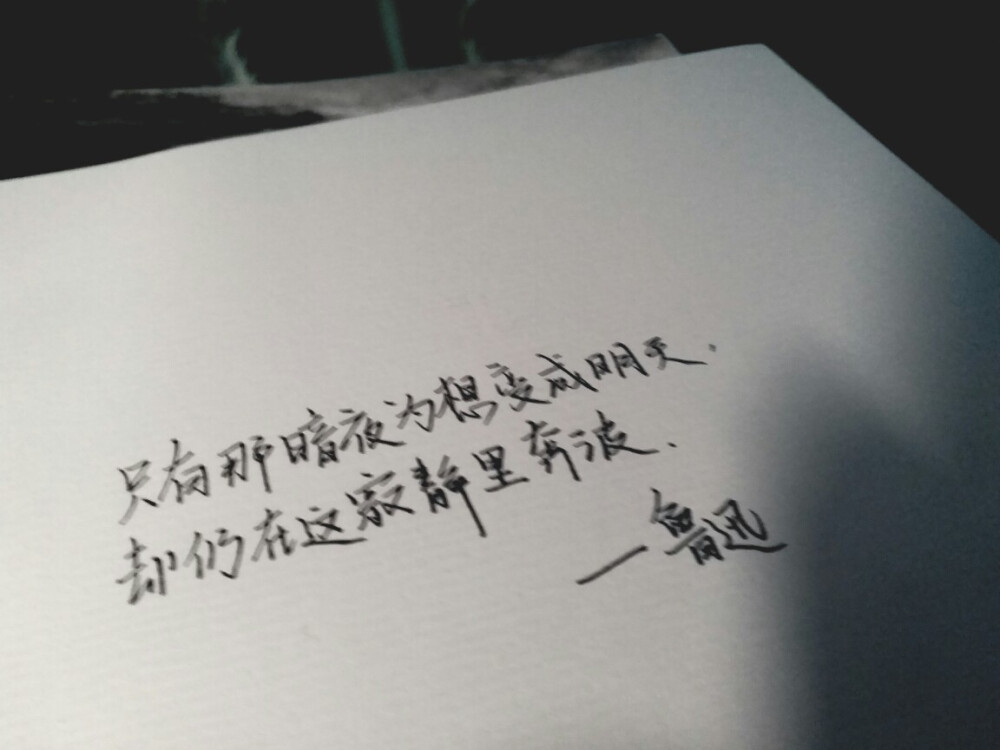 只有那暗夜为想变成明天.
却仍在这寂静里奔波.
—鲁迅